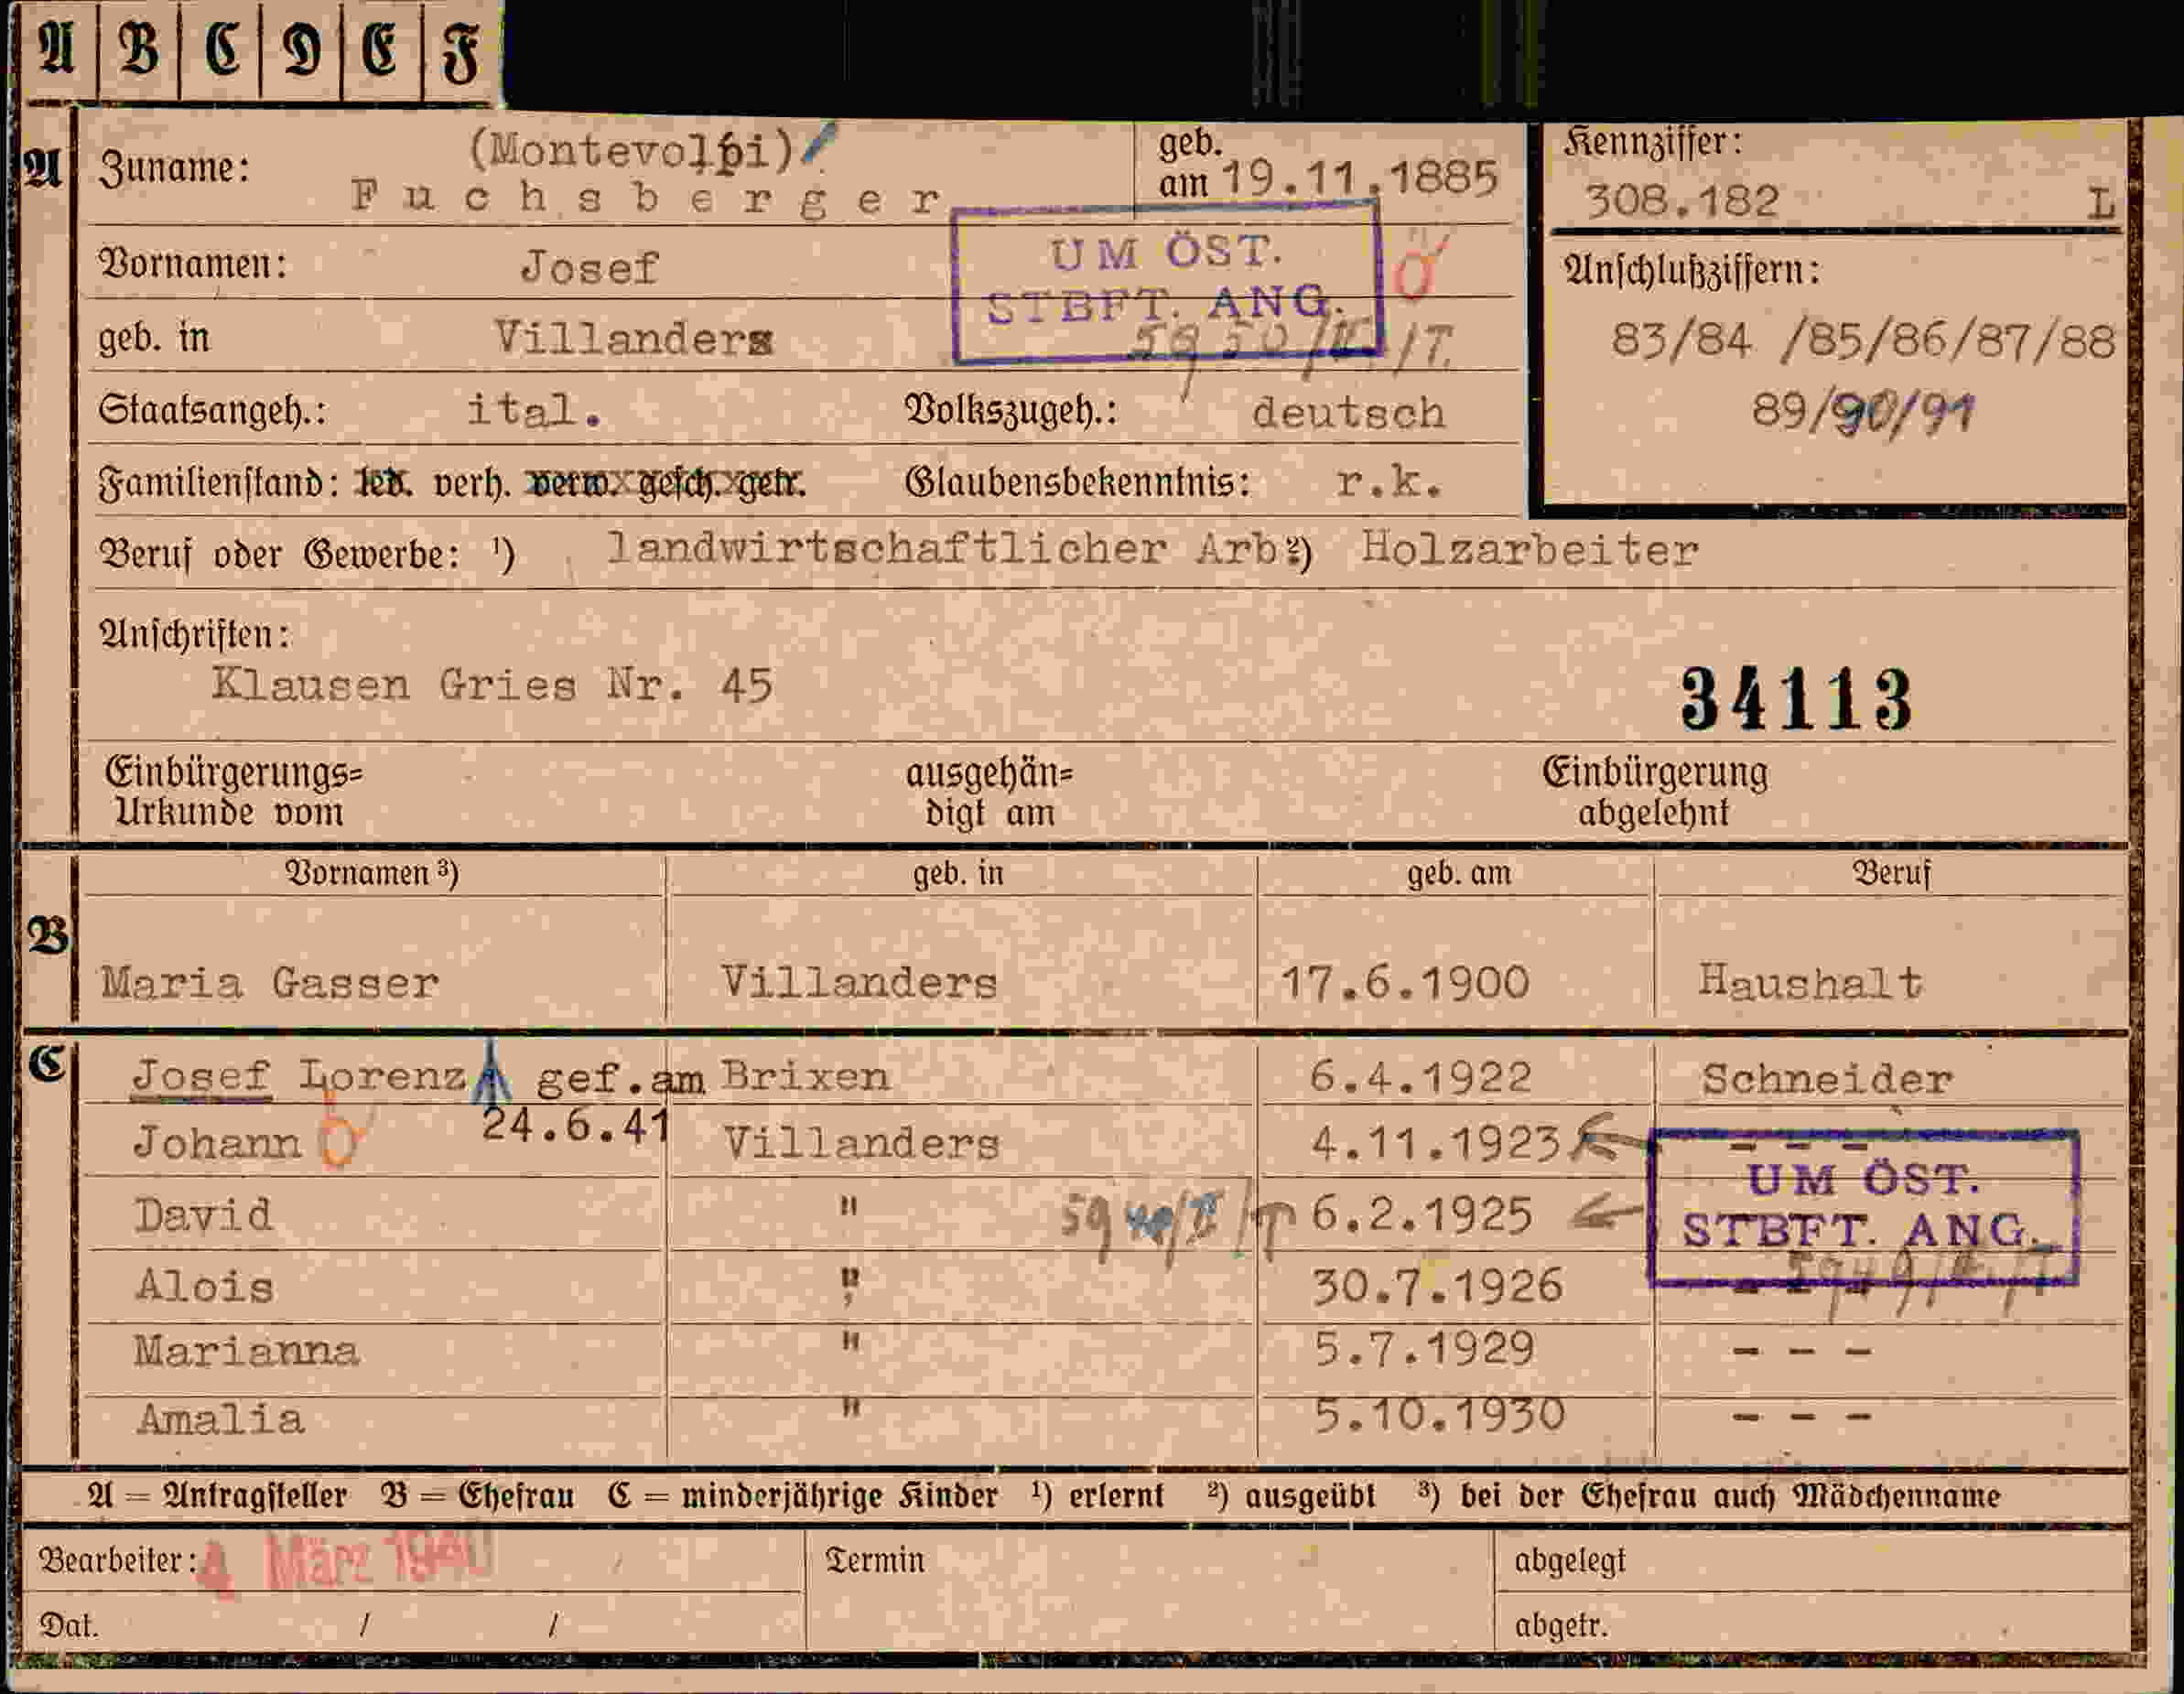 A B C D E F
A Zuname: (Montevolpi)
Fuchsberger
geb. am 19.11.1885
Kennziffer:
308.182 L
Vornamen: Josef
UM ÖST.
STBFT. ANG.
Anschlußziffern:
83/84 /85/86/87/88
89/90/91
geb. in Villanders
Staatsangeh.: ital. Volkszugeh.: deutsch
Familienstand: led. verh. verw. gesch. getr. Glaubensbekenntnis: r.k.
Beruf oder Gewerbe: ¹) landwirtschaftlicher Arb ²) Holzarbeiter
Anschriften:
Klausen Gries Nr. 45
34113
Einbürgerungs=
Urkunde vom
ausgehän=
digt am
Einbürgerung
abgelehnt
Vornamen ³) geb. in geb. am Beruf
B
Maria Gasser Villanders 17.6.1900 Haushalt
C Josef Lorenz gef.am Brixen 6.4.1922 Schneider
24.6.41
Johann Villanders 4.11.1923 - - -
David " 6.2.1925
UM ÖST.
STBFT. ANG.
Alois " 30.7.1926 - - -
Marianna " 5.7.1929 - - -
Amalia " 5.10.1930 - - -
A = Antragsteller B = Ehefrau C = minderjährige Kinder ¹) erlernt ²) ausgeübt ³) bei der Ehefrau auch Mädchenname
Bearbeiter: 4 März 1940
Termin
abgelegt
Dat. / /
abgetr.